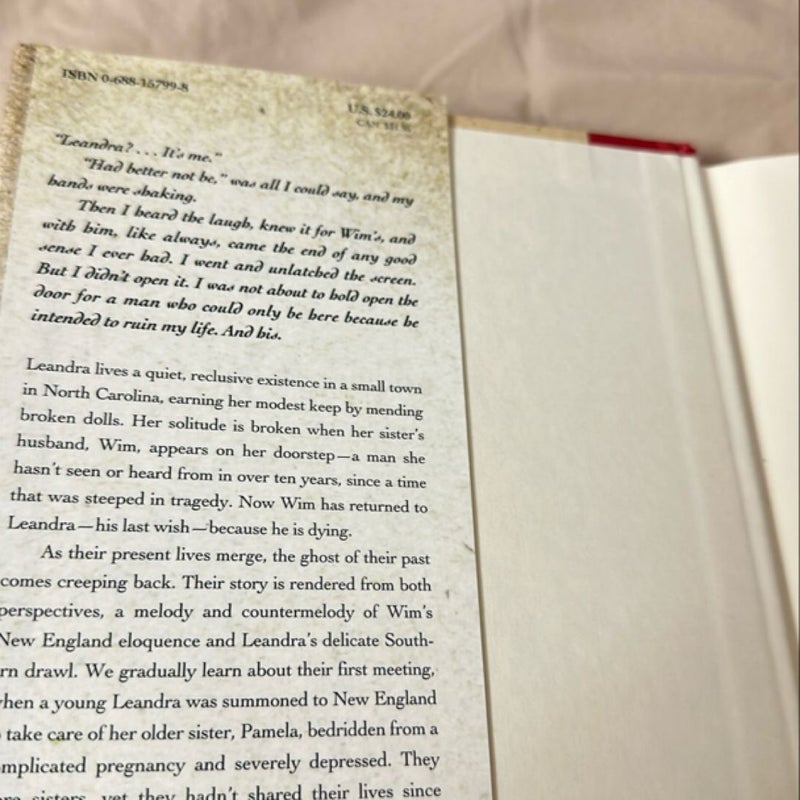 ISBN 0-688-15799-8
U.S. $24.00
"Leandra? . . . It's me."
"Had better not be," was all I could say, and my
hands were shaking.
Then I heard the laugh, knew it for Wim's, and
with him, like always, came the end of any good
sense I ever had. I went and unlatched the screen.
But I didn't open it. I was not about to hold open the
door for a man who could only be here because he
intended to ruin my life. And his.
Leandra lives a quiet, reclusive existence in a small town
in North Carolina, earning her modest keep by mending
broken dolls. Her solitude is broken when her sister's
husband, Wim, appears on her doorstep—a man she
hasn't seen or heard from in over ten years, since a time
that was steeped in tragedy. Now Wim has returned to
Leandra—his last wish—because he is dying.
As their present lives merge, the ghost of their past
comes creeping back. Their story is rendered from both
perspectives, a melody and countermelody of Wim's
New England eloquence and Leandra's delicate South-
rn drawl. We gradually learn about their first meeting,
hen a young Leandra was summoned to New England
take care of her older sister, Pamela, bedridden from a
mplicated pregnancy and severely depressed. They
re sisters, yet they hadn't shared their lives since